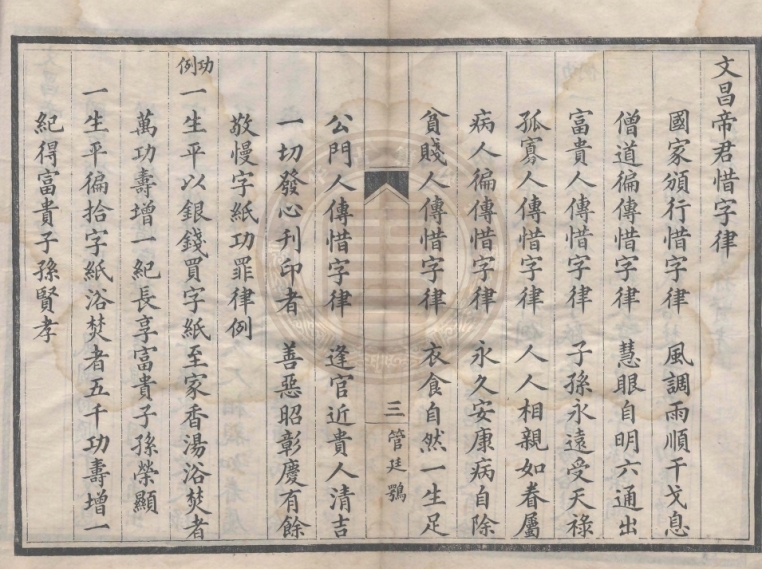 文昌帝君惜字律
國家頒行惜字律　風調雨順干戈息
僧道徧傳惜字律　慧眼自明六通出
富貴人傳惜字律　子孫永遠受天祿
孤寡人傳惜字律　人人相親如眷屬
病人徧傳惜字律　永久安康病自除
貧賤人傳惜字律　衣食自然一生足
三　管廷鶚
公門人傳惜字律　逢官近貴人清吉
一切發心刊印者　善惡昭彰慶有餘
敬慢字紙功罪律例
功例
一生平以銀錢買字紙至家香湯浴焚者
萬功壽增一紀長享富貴子孫榮顯
一生平徧拾字紙浴焚者五千功壽增一
紀得富貴子孫賢孝